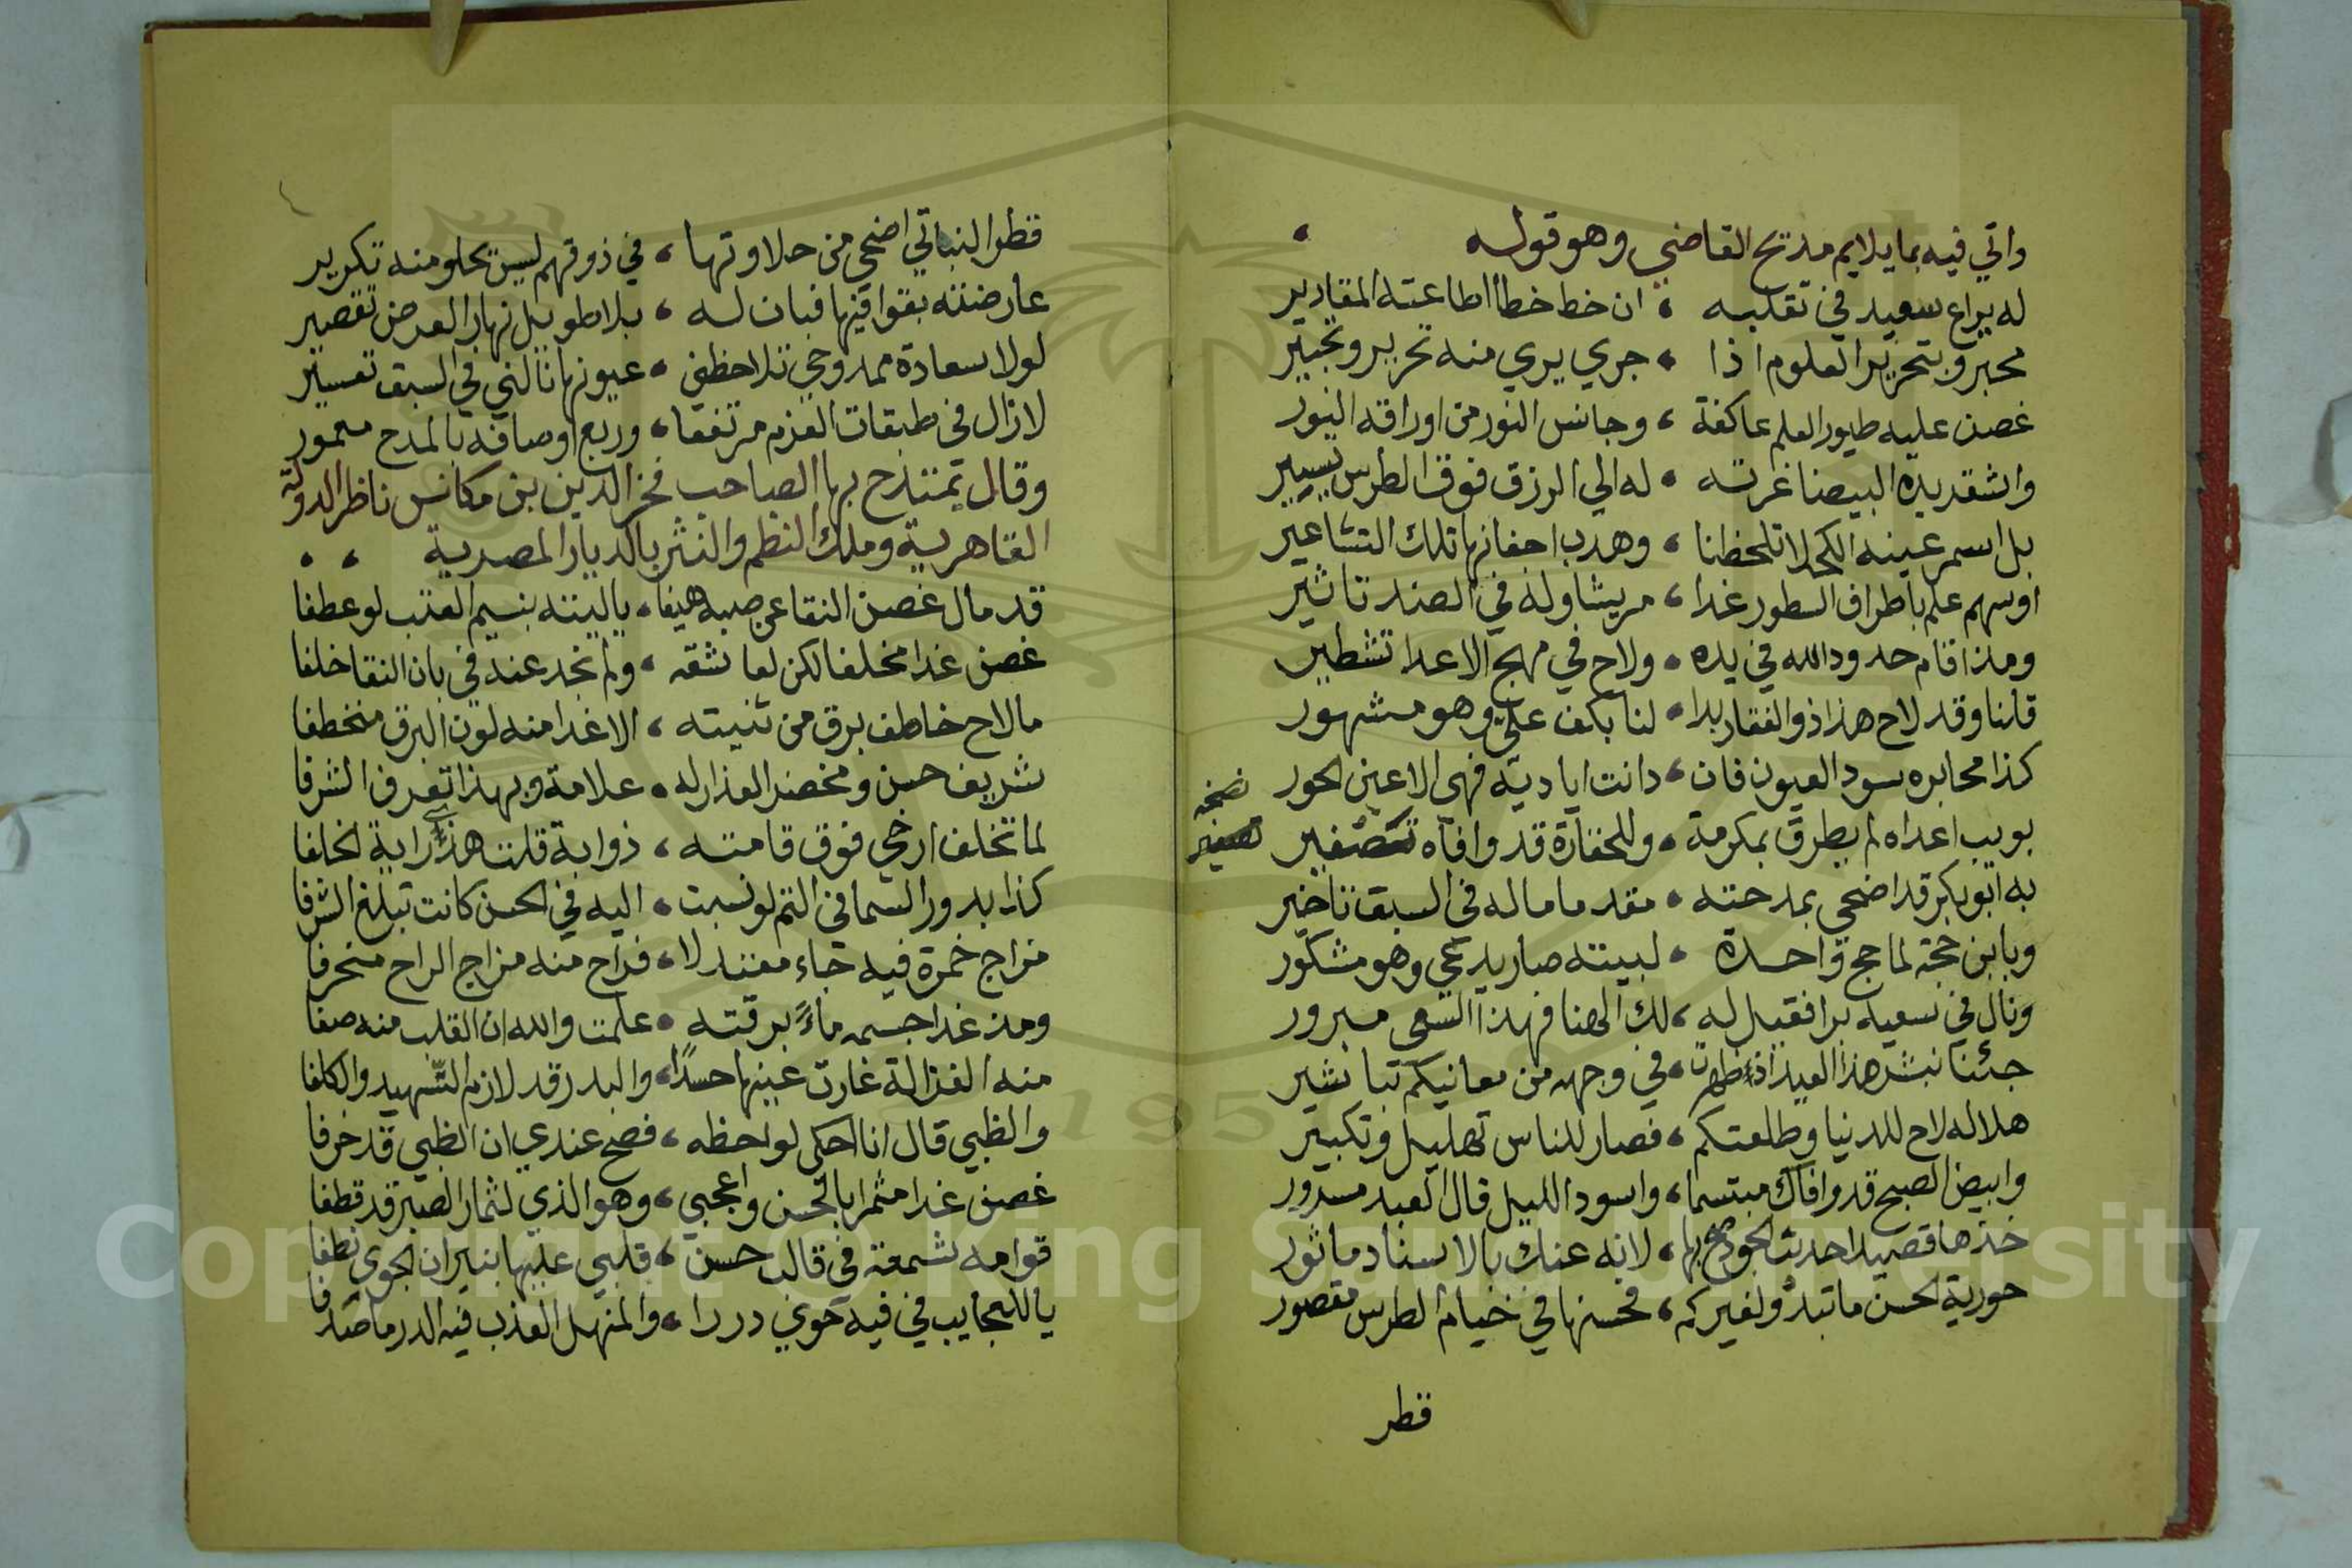 واتي فيه بما يلايم مديح القاضي وهو قوله
له يراع سعيد في تقلبه ، ان خط خطا اطاعته المقادير
محبر وبتحرير العلوم اذا ، جري يري منه تحرير وتحبير
غصن عليه طيور العلم عاكفة ، وجانس النور من اوراقه النور
واشقر يده البيضا غرته ، له الي الرزق فوق الطرس تيسير
بل اسمر عينه الكحلا تلحظنا ، وهدب اجفانها تلك التشاعير
اوسهم علم باطراف السطور غدا ، مريشا وله في الصد تاثير
ومذ اقام حدود الله في يده ، ولاح في مهج الاعدا تشطير
قلنا وقد لاح هذا ذو الفقار بدا ، لنا بكف علي وهو مشهور
كذا محابره سود العيون فان ، دانت اياديه فهي الاعين الحور
بويب اعداه لم يطرق بمكرمة ، وللحقارة قد وافاه تصغير
نسخه
تصغير
به ابو بكر قد اضحي بمدحته ، مقدما ماله في السبق تاخير
وبابن حجة لما حج واحدة ، لبيته صار يدعي وهو مشكور
ونال في سعيه برا فقيل له ، لك الهنا فهذا السعي مبرور
جئنا نبشر هذا العيد اذ ظهرت ، في وجهه من معانيكم تباشير
هلاله لاح للدنيا وطلعتكم ، فصار للناس تهليل وتكبير
وابيض الصبح قد وافاك مبتسما ، واسود الليل قال العبد مسرور
خذها قصيدا حديث الجود صح بها ، لانه عنك بالاسناد ماثور
حورية الحسن ما تبدو لغيركم ، فحسنها في خيام الطرس مقصور
قطر
قطر النباتي اضحي من حلاوتها ، في ذوقهم ليس يحلو منه تكرير
عارضته بقوافيها فبان له ، بلا طويل نهار العرض تقصير
لولا سعادة ممدوحي تلاحظني ، عيونها نالني في السبق تعسير
لازال في طبقات العزم مرتفعا ، وربع اوصافه بالمدح معمور
وقال يمتدح بها الصاحب فخر الدين بن مكانس ناظر الدولة
القاهرية وملك النظم والنثر بالديار المصرية ، ،
قد مال غصن النقا عن صبه هيفا ، ياليته بنسيم العتب لو عطفا
غصن غدا مخلفا لكن لعاشقه ، ولم نجد عنه في بان النقا خلفا
مالاح خاطف برق من ثنيته ، الا غدا منه لون البرق منخطفا
شريف حسن ومخضر العذار له ، علامة وبهذا تعرف الشرفا
لما تخلف ارخي فوق قامته ، ذوابة قلت هذي راية الخلفا
كذا بدور السما في التم لو نسبت ، اليه في الحسن كانت تبلغ الشرفا
مزاج خمرة فيه جاء معتدلا ، فراح منه مزاج الراح منحرفا
ومذ غدا جسمه ماءً برقته ، علمت والله ان القلب منه صفا
منه الغزالة غارت عينها حسدًا ، والبدر قد لازم التسهيد والكلفا
والظبي قال انا احكي لواحظه ، فصح عندي ان الظبي قد خرفا
غصن غدا مثمرا بالحسن واعجبي ، وهو الذي لثمار الصبر قد قطفا
قوامه شمعة في قالب حسن ، قلبي عليها بنيران الجوي نطفا
يا للعجايب في فيه حوي دررا ، والمنهل العذب فيه الدر ما صدفا